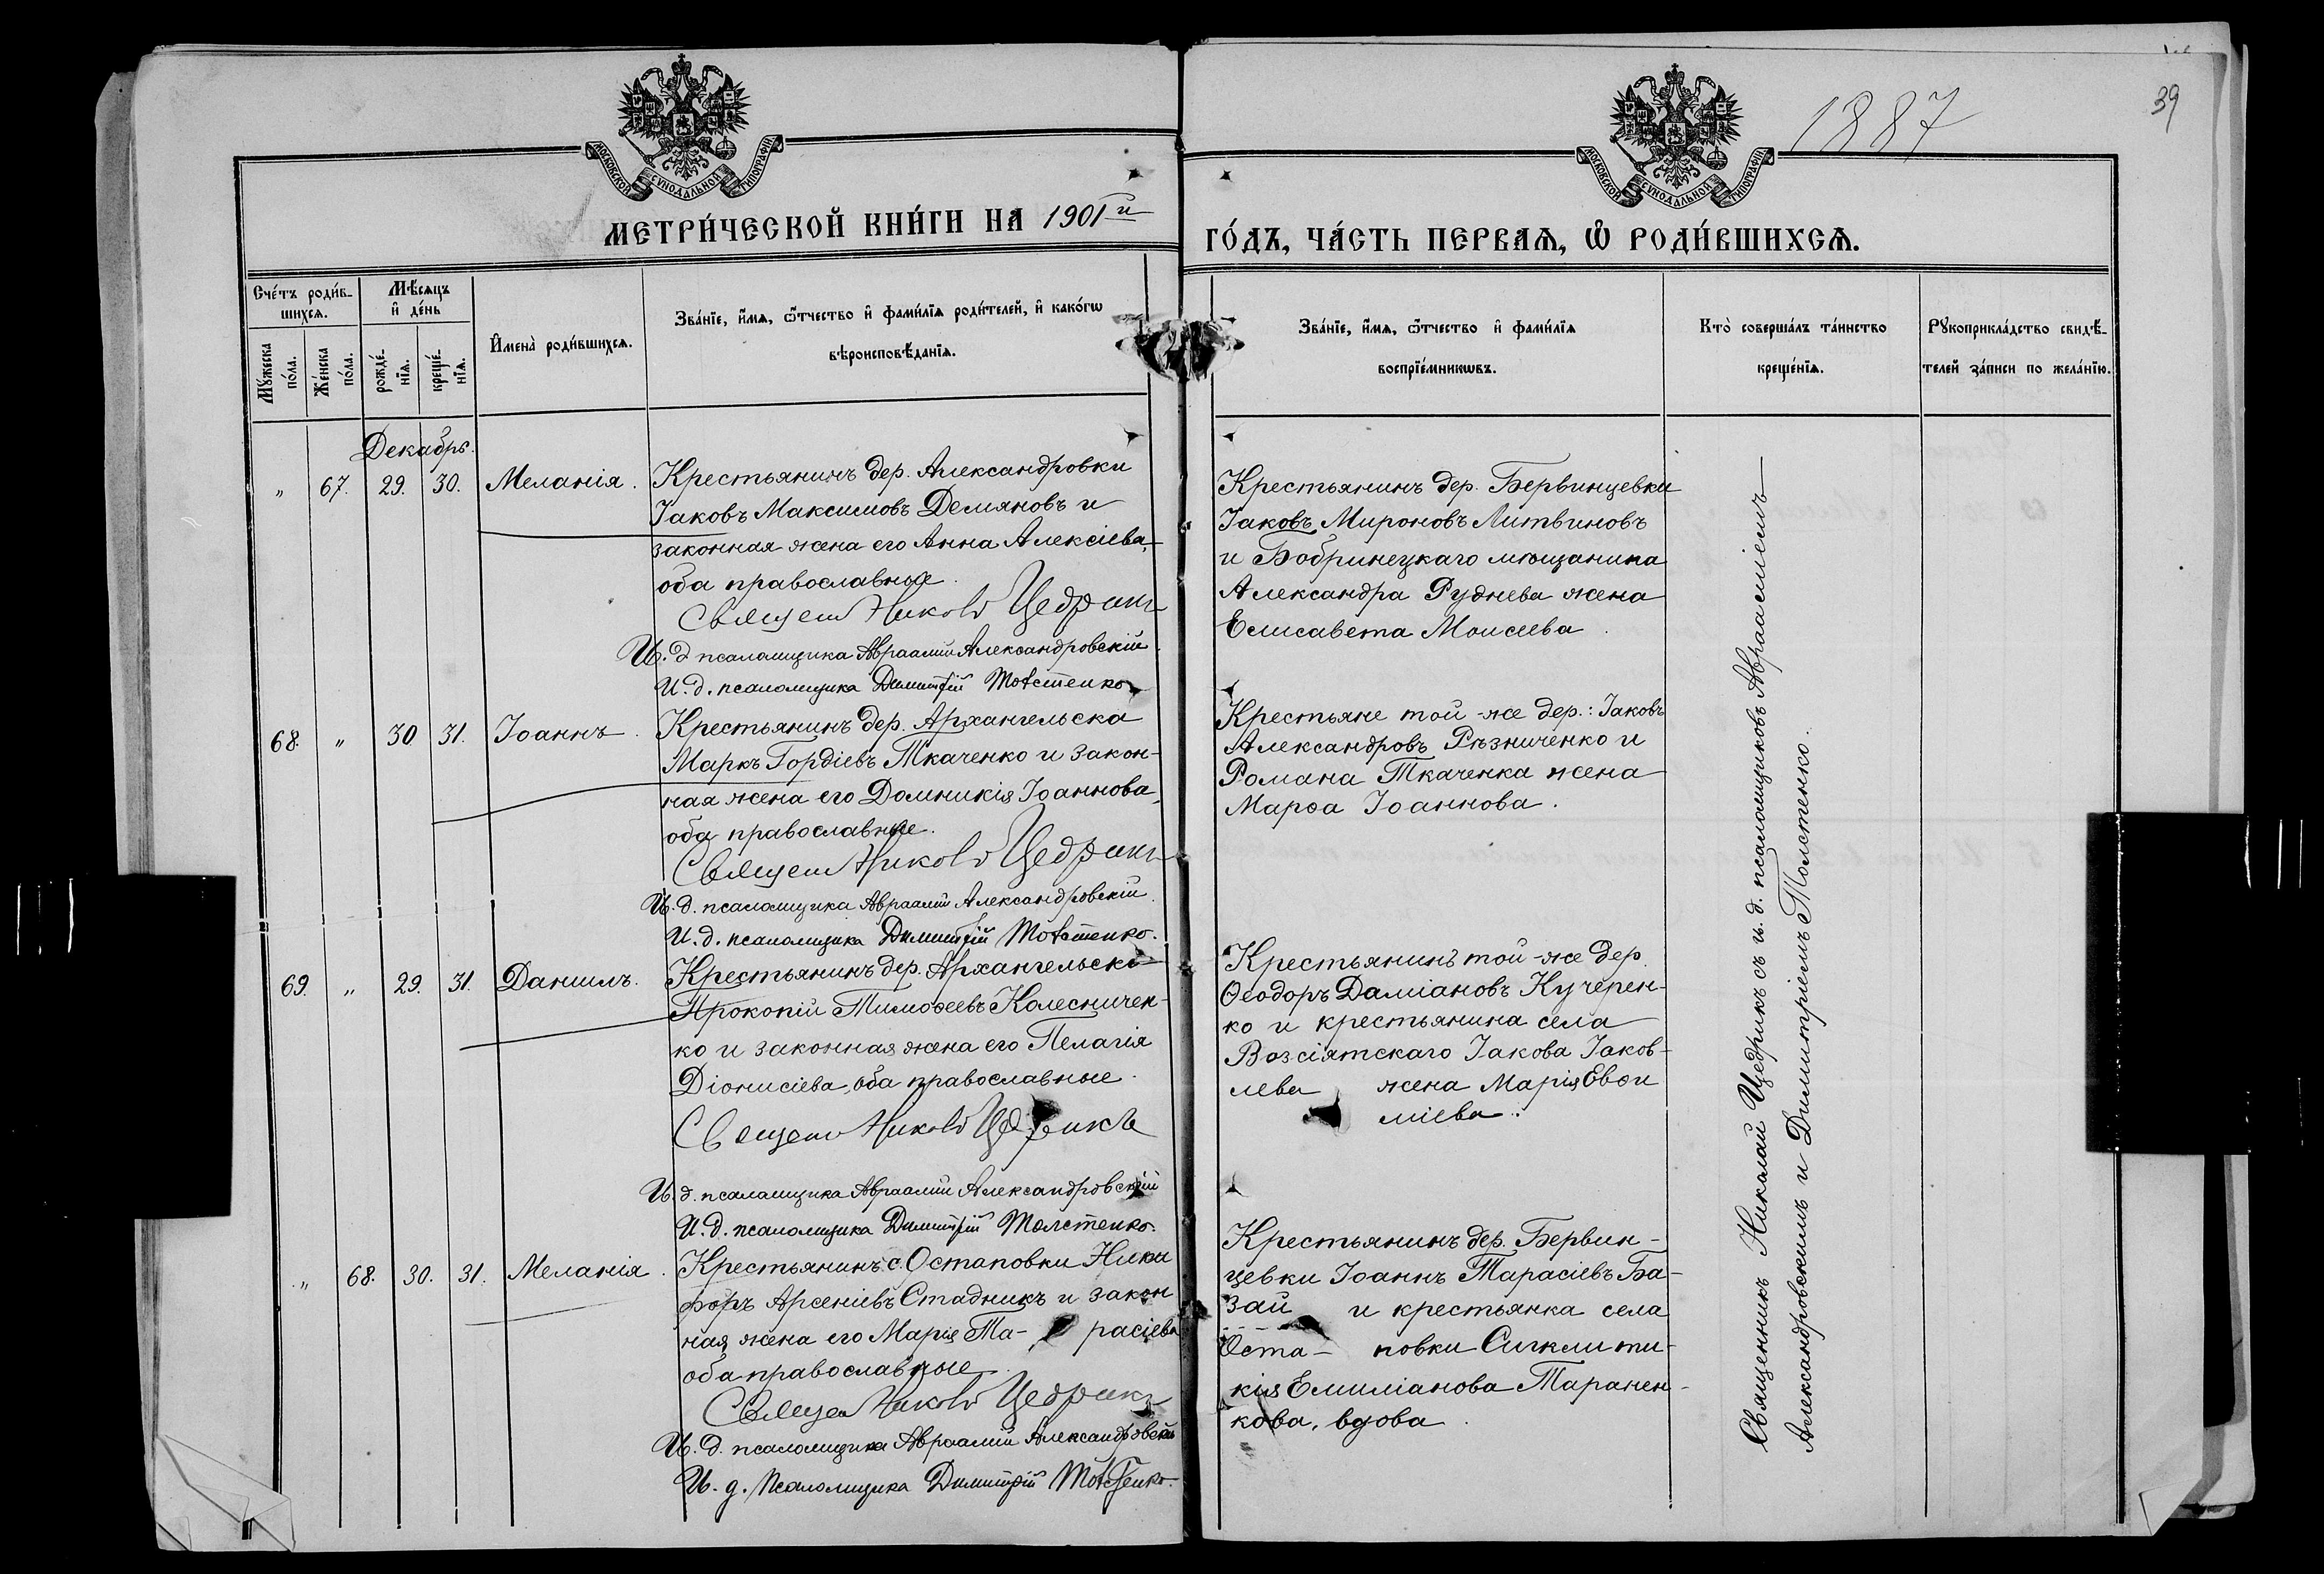 1887
39
МОСКОВСКОЙ СѴНОДАЛЬНОЙ ТИПОГРАФІИ
МОСКОВСКОЙ СѴНОДАЛЬНОЙ ТИПОГРАФІИ
МЕТРИ́ЧЕСКОЙ КНИ́ГИ НА 1901й
ГО́ДЪ, ЧА́СТЬ ПЕРВАѦ, Ѽ РОДИ́ВШИХСѦ.
Сче́тъ роди́в-
шихсѧ.
Мꙋ́жеска
по́ла.
Же́нска
по́ла.
Мѣ́сѧцъ
и҆ де́нь
рожде́-
нїѧ.
креще́-
нїѧ.
И҆мена̀ роди́вшихсѧ.
Зва́нїе, и҆́мѧ, ѻ҆́тчество и҆ фами́лїѧ роди́телей, и҆ како́гѡ
вѣроисповѣ́данїѧ.
Зва́нїе, и҆́мѧ, ѻ҆́тчество и҆ фами́лїѧ
воспрїе́мникѡвъ.
Кто̀ соверша́лъ та́инство
креще́нїѧ.
Рꙋкоприкла́дство свидѣ́-
телей за́писи по жела́нїю.
Декабрь.
„ 67. 29. 30. Меланія.
Крестьянинъ дер. Александровки
Іаковъ Максимовъ Демяновъ и
законная жена его Анна Алексіева,
оба православные.
Священ Никол Цедрикъ
И. д псаломщика Авраамій Александровскій.
И. д. псаломщика Димитрій Толстенко
Крестьянинъ дер. Бервинцевки
Іаковъ Мироновъ Литвиновъ
и Бобринецкаго мѣщанина
Александра Руднева жена
Елисавета Моисеева.
68. „ 30 31. Іоаннъ.
Крестьянинъ дер. Архангельска
Маркъ Гордіевъ Ткаченко и закон-
ная жена его Домникія Іоаннова,
оба православные.
Священ Никол Цедрикъ
И. д. псаломщика Авраамій Александровскій.
И. д. псаломщика Димитрій Толстенко.
Крестьяне той-же дер.: Іаковъ
Александровъ Рѣзниченко и
Романа Ткаченка жена
Марѳа Іоаннова.
69. „ 29. 31. Даниилъ.
Крестьянинъ дер. Архангельска
Прокопій Тимоѳеевъ Колесничен-
ко и законная жена его Пелагія
Діонисіева, оба православные.
Священ Никол Цедрикъ
И. д. псаломщика Авраамій Александровскій
И. д. псаломщика Димитрій Толстенко.
Крестьянинъ той-же дер.
Ѳеодоръ Даміановъ Кучерен-
ко и крестьянина села
Возсіятскаго Іакова Іаков-
лева жена Марія Евѳи
міева.
„ 68. 30. 31. Меланія.
Крестьянинъ с. Остаповки Ники
форъ Арсеніевъ Стадникъ и закон
ная жена его Марія Та- расіева
оба православные.
Священ Никол Цедрикъ
И. д. псаломщика Авраамій Александровскій
И. д. Псаломщика Димитрій Толстенко.
Крестьянинъ дер. Бервин-
цевки Іоаннъ Тарасіевъ Ба-
зай и крестьянка села
Оста- повки Сигкли ти-
кія Емиліанова Таранен-
кова, вдова.
Священникъ Николай Цедрикъ съ и. д. псаломщиковъ Авраамiемъ
Александровскимъ и Димитріемъ Толстенко.